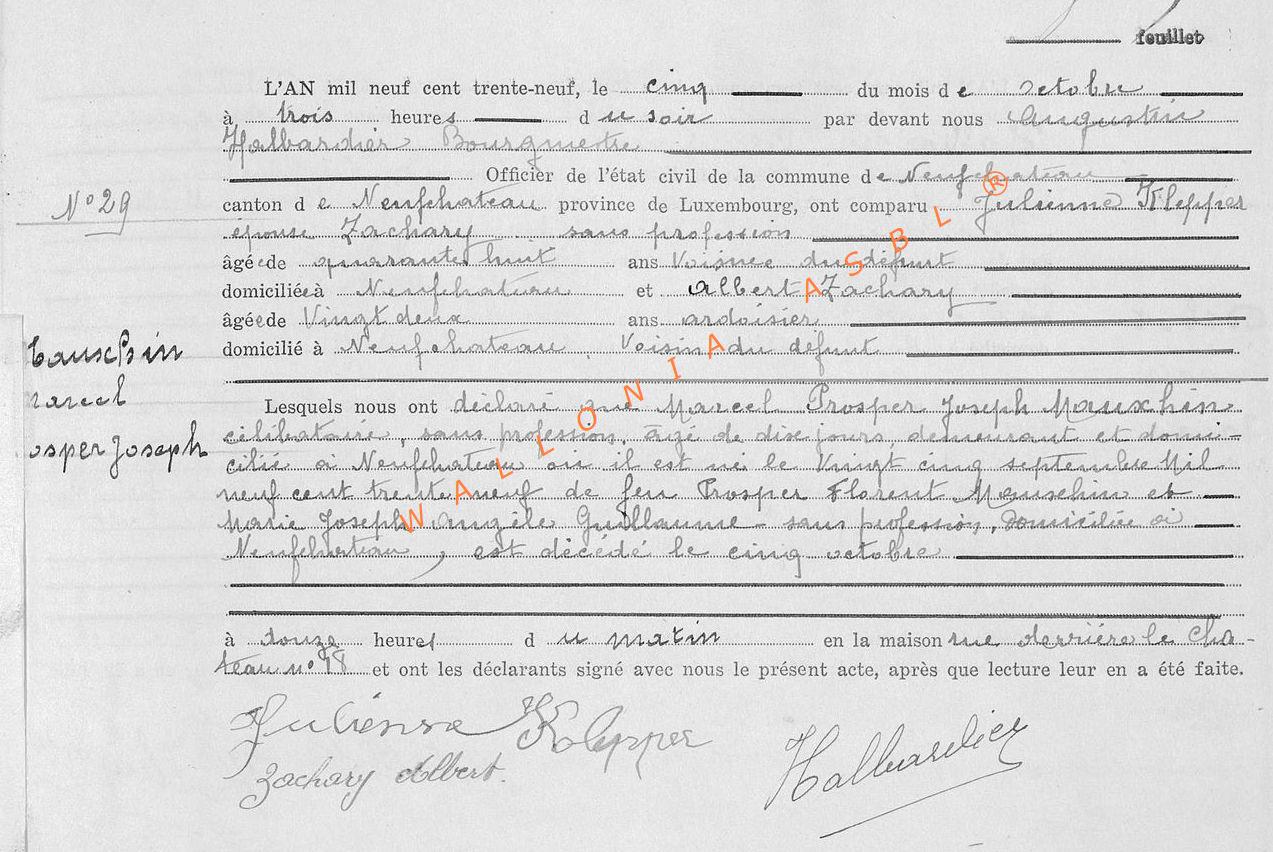 feuillet
L'AN mil neuf cent trente-neuf, le cinq du mois de octobre
à trois heures du soir par devant nous Augustin
Halbardier Bourgmestre
Officier de l'état civil de la commune de Neufchateau
N° 29
canton de Neufchateau province de Luxembourg, ont comparu Julienne Klepper
épouse Zachary sans profession
âgée de quarante huit ans Voisine du défunt
domiciliée à Neufchateau et Albert Zachary
âgée de Vingt deux ans ardoisier
domicilié à Neufchateau, Voisin du défunt
Mauxhin
Marcel
Prosper Joseph
Lesquels nous ont déclaré que Marcel Prosper Joseph Mauxhin
célibataire, sans profession, âgé de dix jours, demeurant et domi-
cilié à Neufchateau où il est né le Vingt cinq septembre Mil
neuf cent trente neuf de feu Prosper Florent Mauxhin et
Marie Joseph Angèle Guillaume - sans profession, domiciliée à
Neufchateau, est décédé le cinq octobre
à douze heures du matin en la maison rue derrière le Cha-
teau n° 18 et ont les déclarants signé avec nous le présent acte, après que lecture leur en a été faite.
Julienne Klepper
Zachary Albert.
Halbardier
WALLONIA ASBL ®